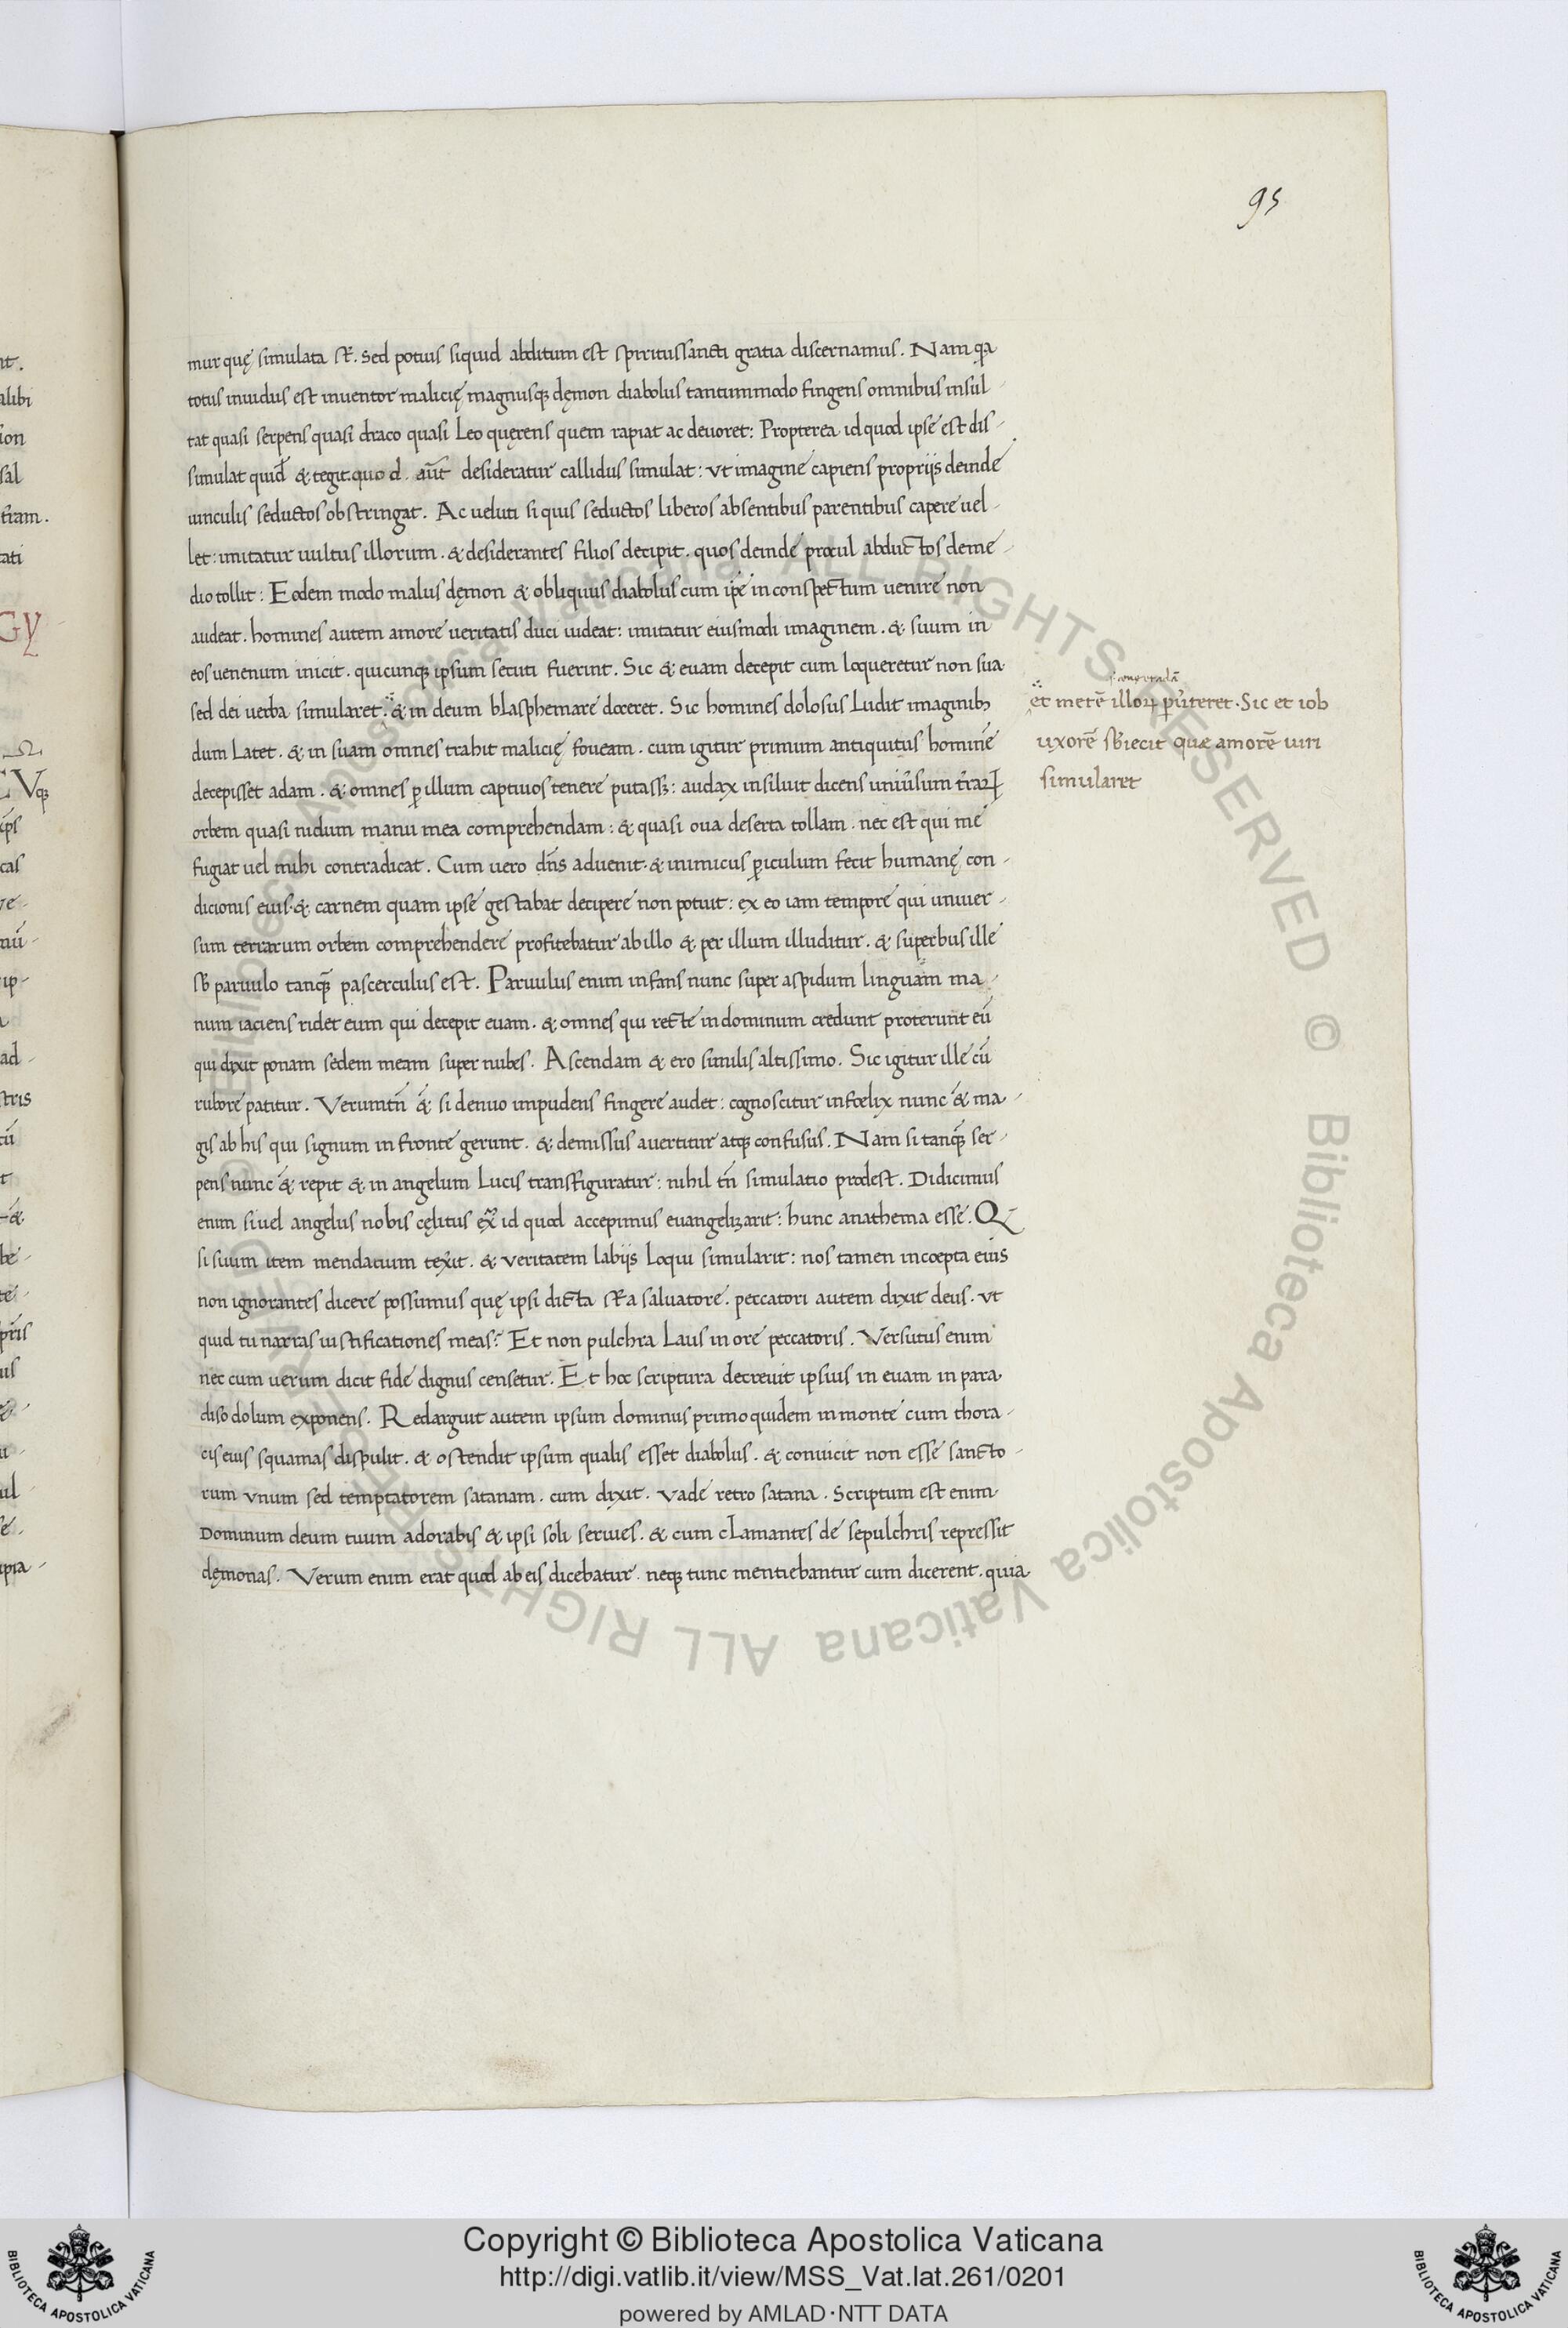 95
mur quę simulata st̄. sed potius siquid abditum est spiritussancti gratia discernamus. Nam qa
totus inuidus est inuentor malicię magnusq; dęmon diabolus tantummodo fingens omnibus insul
tat quasi serpens quasi draco quasi Leo quęrens quem rapiat ac deuoret: Propterea id quod ipse est dis-
simulat quid̄ & tegit. quod. aūt desideratur callidus simulat: vt imagine capiens proprijs deinde
uinculis seductos obstringat. Ac ueluti si quis seductos liberos absentibus parentibus capere uel-
let: imitatur uultus illorum. & desiderantes filios decipit. quos deinde procul abductos de me-
dio tollit: Eodem modo malus dęmon & obliquus diabolus cum ip̄e in conspectum venire non
audeat. homines autem amore ueritatis duci uideat: imitatur eiusmodi imaginem. & suum in
eos uenenum inicit. quicunq; ipsum secuti fuerint. Sic & euam decepit cum loqueretur non sua
sed dei uerba simularet. & in deum blasphemare doceret. Sic homines dolosus Ludit imaginib;
dum Latet. & in suam omnes trahit malicię foueam. cum igitur primum antiquitus hominē
decepisset adam. & omnes p illum captiuos tenere putass;: audax insiluit dicens uniūsum t̄rarꝝ
orbem quasi nidum manu mea comprehendam: & quasi oua deserta tollam. nec est qui me
fugiat uel mihi contradicat. Cum uero dn̄s aduenit. & inimicus ꝑiculum fecit humanę con-
dicionis eius. & carnem quam ipse gestabat decipere non potuit: ex eo iam tempore qui uniuer-
sum terrarum orbem comprehendere profitebatur ab illo & per illum illuditur. & superbus ille
sb̄ paruulo tanq̄ pascerculus est. Paruulus enim infans nunc super aspidum linguam ma-
num iaciens ridet eum qui decepit euam. & omnes qui recte in dominum credunt proterunt eū
qui dixit ponam sedem meam super nubes. Ascendam & ero similis altissimo. Sic igitur ille cū
rubore patitur. Verumtn̄ & si denuo impudens fingere audet: cognoscitur infœlix nunc & ma-
gis ab his qui signum in fronte gerunt. & demissus auertitur atq; confusus. Nam si tanq̄ ser-
pens nunc & repit & in angelum Lucis transfiguratur: nihil tn̄ simulatio prodest. Didicimus
enim siuel angelus nobis cęlitus ex̄ id quod accepimus euangelizarit: hunc anathema esse. Q
si suum item mendacium texit. & veritatem labijs loqui simularit: nos tamen incœpta eius
non ignorantes dicere possumus quę ipsi dicta st̄ a saluatore. peccatori autem dixit deus. vt
quid tu narras iustificationes meas? Et non pulchra Laus in ore peccatoris. Versutus enim
nec cum uerum dicit fide dignus censetur. Et hoc scriptura decreuit ipsius in euam in para
diso dolum exponens. Redarguit autem ipsum dominus primo quidem in monte cum thora-
cis eius squamas dispulit. & ostendit ipsum qualis esset diabolus. & conuicit non esse sancto-
rum vnum sed temptatorem satanam. cum dixit. vade retro satana. Scriptum est enim
Dominum deum tuum adorabis & ipsi soli seruies. & cum clamantes de sepulchris repressit
dęmonas. Verum enim erat quod ab eis dicebatur. neq; tunc mentiebantur cum dicerent. quia
et metē illoꝝ pūteret. Sic et iob
uxorē sb̄iecit quæ amorē uiri
simularet
Copyright © Biblioteca Apostolica Vaticana
http://digi.vatlib.it/view/MSS_Vat.lat.261/0201
powered by AMLAD·NTT DATA